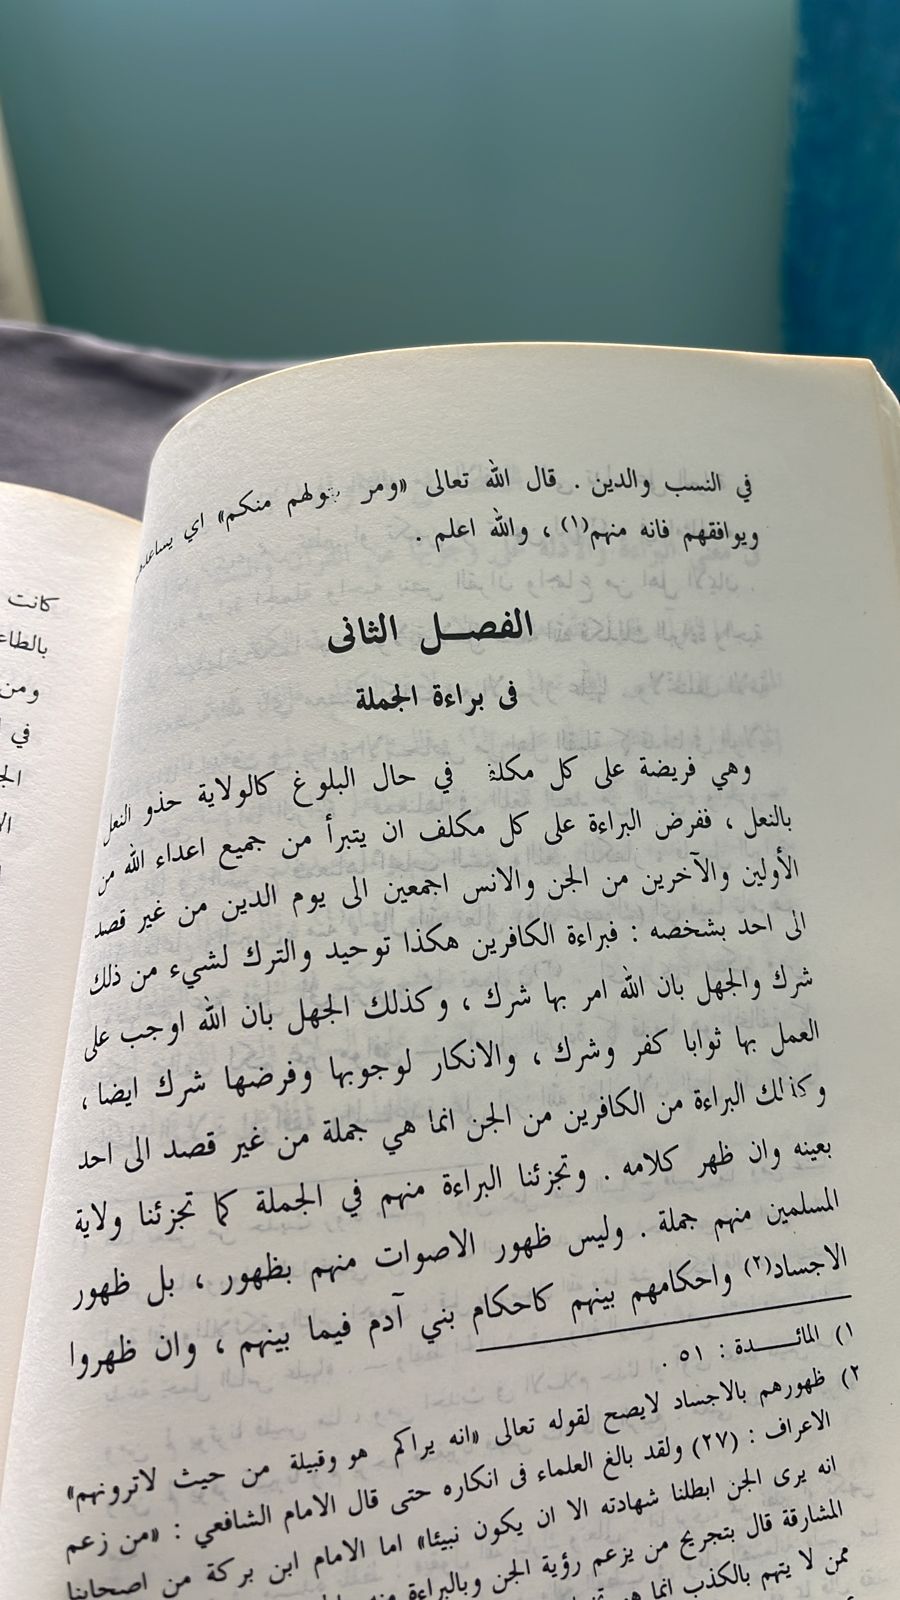 في النسب والدين . قال الله تعالى «ومر يتولهم منكم» اي
ويوافقهم فانه منهم(١) ، والله اعلم .
الفصــل الثانى
فى براءة الجملة
وهي فريضة على كل مكلف في حال البلوغ كالولاية حذو النعل
بالنعل ، ففرض البراءة على كل مكلف ان يتبرأ من جميع اعداء الله من
الأولين والآخرين من الجن والانس اجمعين الى يوم الدين من غير قصد
الى احد بشخصه : فبراءة الكافرين هكذا توحيد والترك لشيء من ذلك
شرك والجهل بان الله امر بها شرك ، وكذلك الجهل بان الله اوجب على
العمل بها ثوابا كفر وشرك ، والانكار لوجوبها وفرضها شرك ايضا ،
وكذلك البراءة من الكافرين من الجن انما هي جملة من غير قصد الى احد
بعينه وان ظهر كلامه . وتجزئنا البراءة منهم في الجملة كما تجزئنا ولاية
المسلمين منهم جملة . وليس ظهور الاصوات منهم بظهور ، بل ظهور
الاجساد(٢) واحكامهم بينهم كاحكام بني آدم فيما بينهم ، وان ظهروا
١) المائــــدة : ٥١ .
٢) ظهورهم بالاجساد لايصح لقوله تعالى «انه يراكم هو وقبيلة من حيث لاترونهم»
الاعراف : (٢٧) ولقد بالغ العلماء فى انكاره حتى قال الامام الشافعي : «من زعم
انه يرى الجن ابطلنا شهادته الا ان يكون نبيئا» اما الامام ابن بركة من اصحابنا
المشارقة قال بتجريح من يزعم رؤية الجن وبالبراءة
ممن لا يتهم بالكذب انما
كانت
بالطا
ومن
في